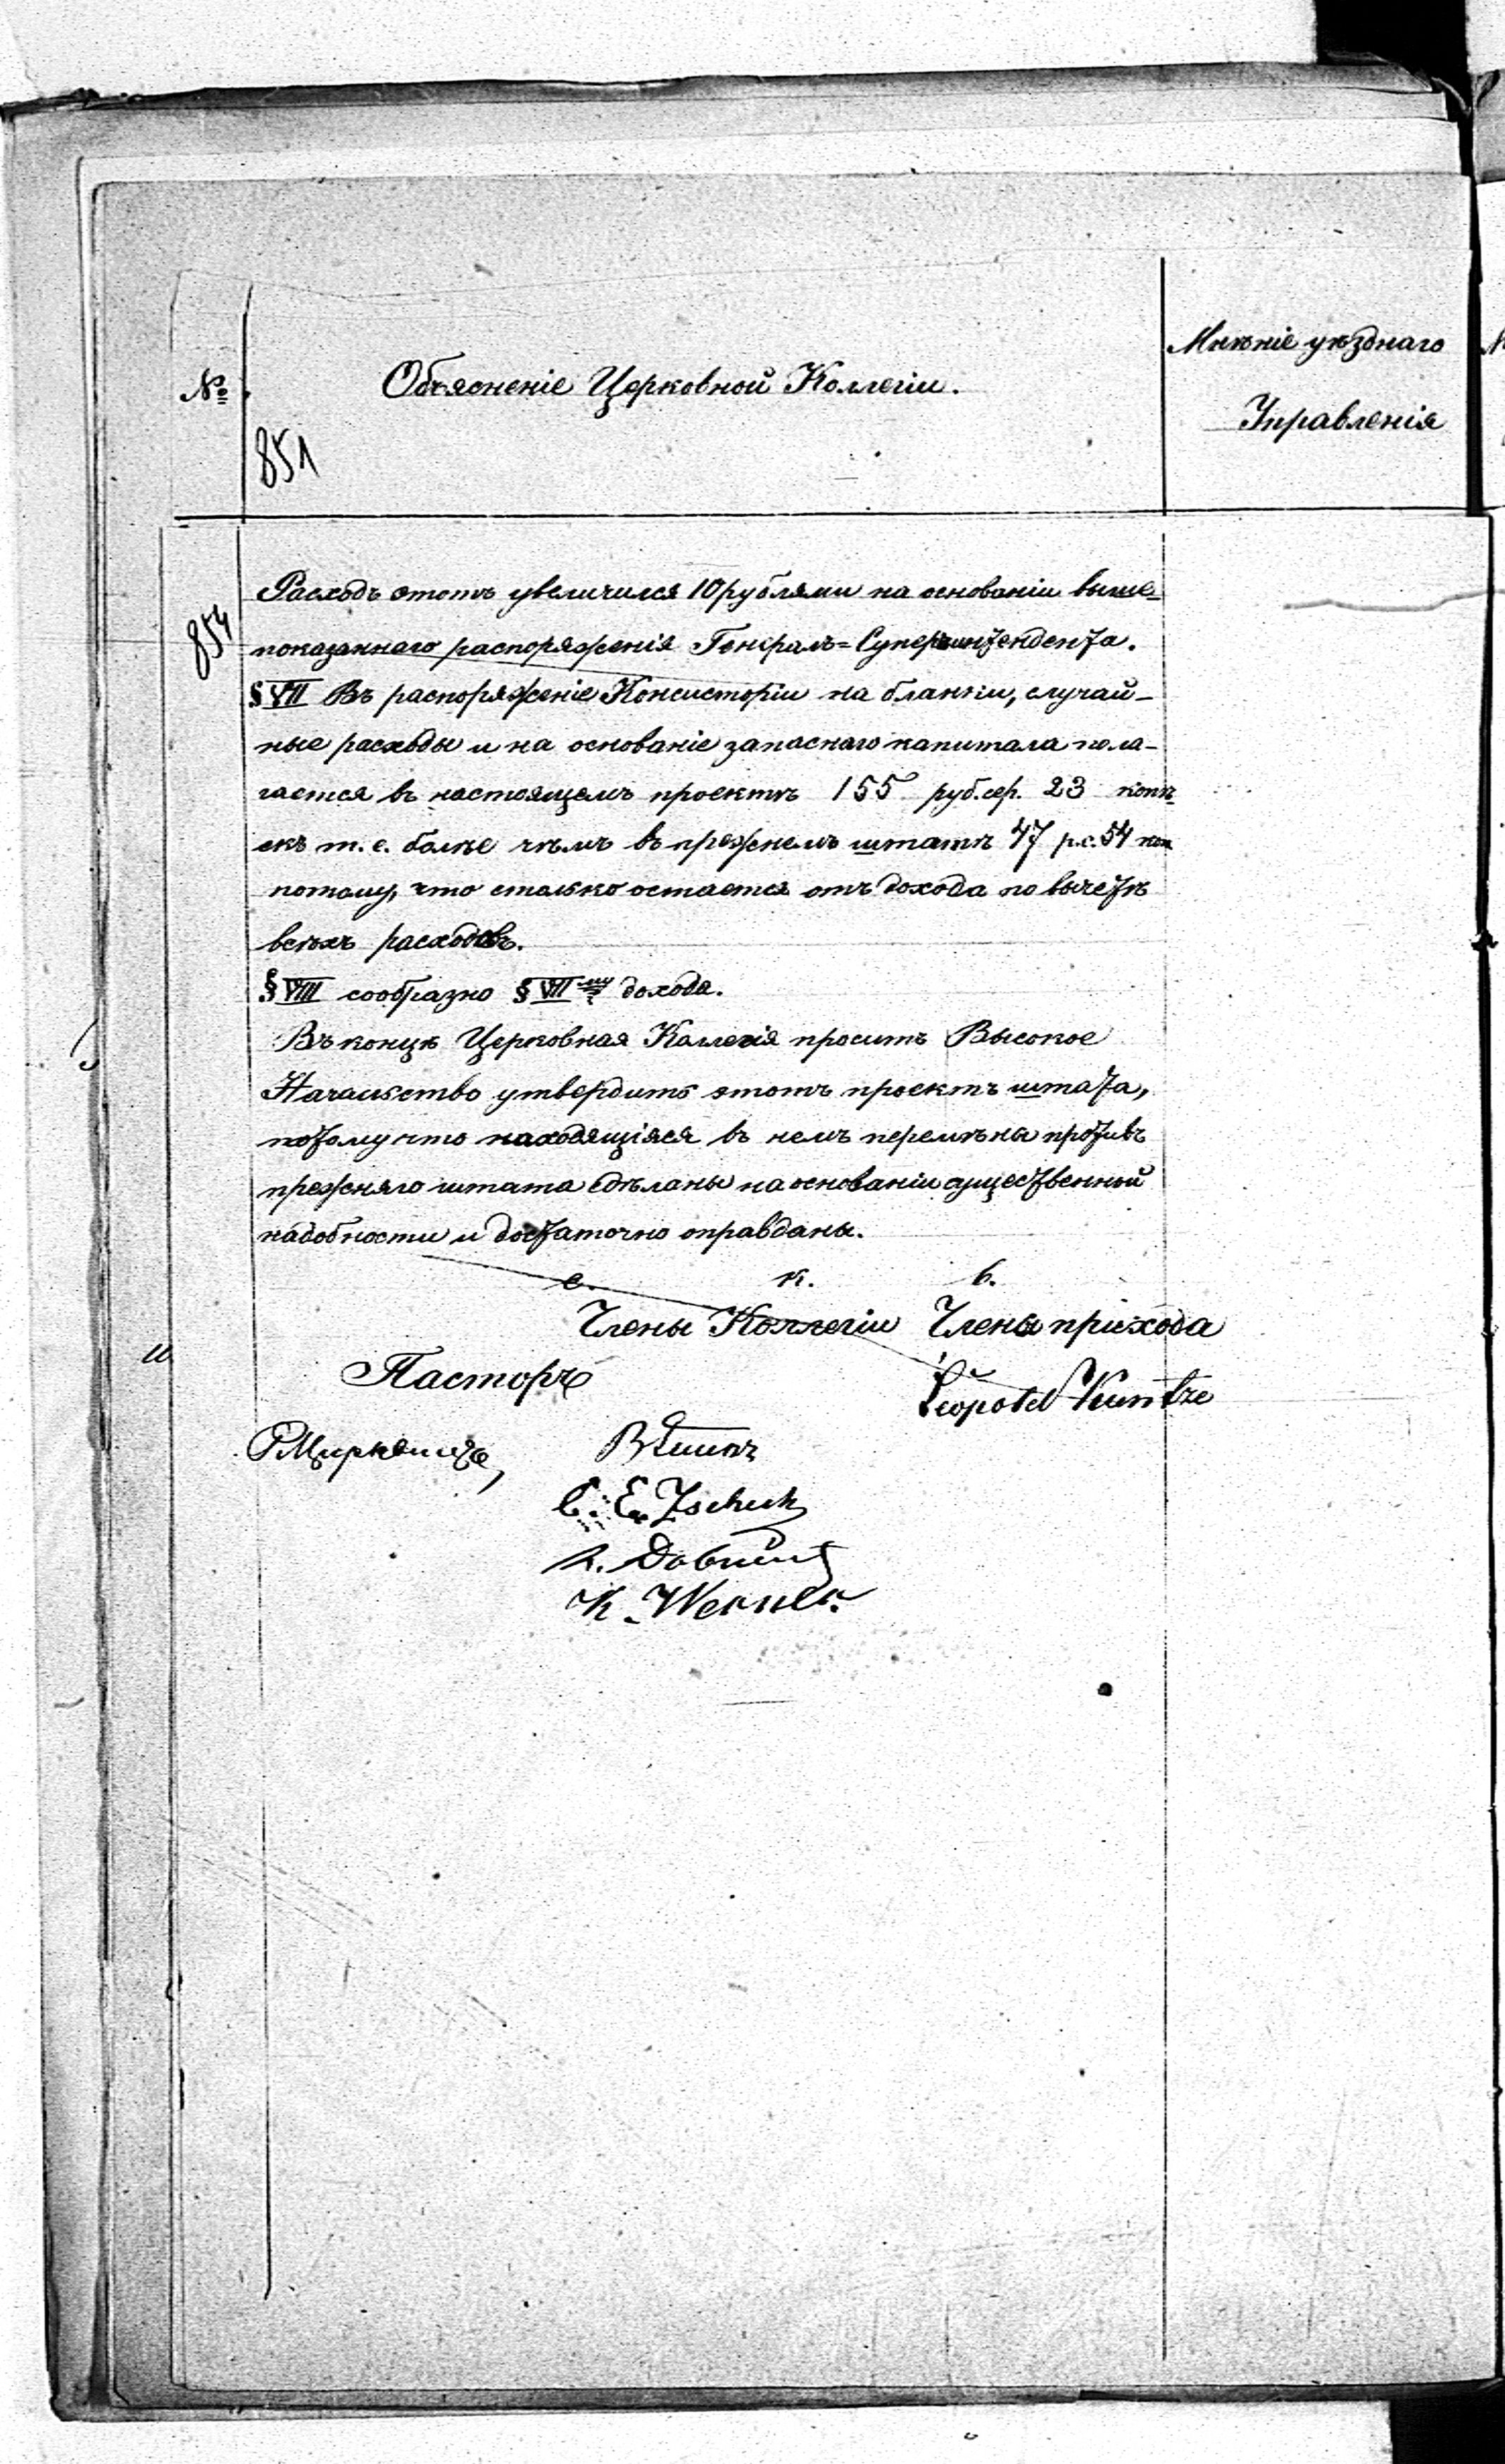 Мнѣніе уѣзднаго
№ Объясненіе Церковной Коллегіи.
Управленія
851
Расходъ этотъ увеличился 10 рублями на основаніи выше-
854
показаннаго распоряженія Генералъ=Суперъинтендента.
§ VII Въ распоряженіе Консисторіи на бланки, случай-
ные расходы и на основаніе запаснаго капитала пола-
гается въ настоящемъ проектѣ 155 руб. сер. 23 копѣ
екъ т. е. болѣе чѣмъ въ прежнемъ штатѣ 47 р. с. 54 коп
потому, что столько остается отъ дохода по вычетѣ
всѣхъ расходовъ.
§ VIII сообразно § VII му дохода.
Въ концѣ Церковная Коллегія проситъ Высокое
Начальство утвердить этотъ проектъ штата,
потому что находящіяся въ немъ перемѣны противъ
прежняго штата сдѣланы на основаніи существенной
надобности и достаточно оправданы.
е. к. в.
Члены Коллегіи Члены прихода
Пасторъ
Leopold Kuntze
C. E. Zschuk
K. Werner.